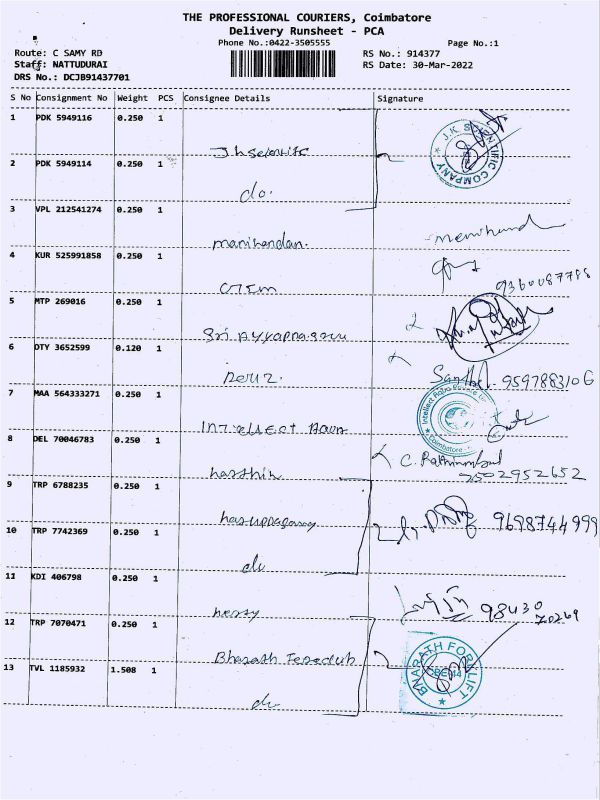 THE PROFESSIONAL COURIERS, Coimbatore
Delivery Runsheet - PCA
Phone No.:0422-3505555
Page No.:1
Route: C SAMY RD
RS No.: 914377
Staff: NATTUDURAI
RS Date: 30-Mar-2022
DRS No.: DCJB91437701
S No Consignment No Weight PCS Consignee Details Signature
1 PDK 5949116 0.250 1
J.K SCIENTIFIC COMPANY
2 PDK 5949114 0.250 1
do.
3 VPL 212541274 0.250 1
manikandan.
4 KUR 525991858 0.250 1
9360087788
5 MTP 269016 0.250 1
Sri
6 DTY 3652599 0.120 1
9597883106
7 MAA 564333271 0.250 1
Coimbatore
8 DEL 70046783 0.250 1
C.
9502952652
9 TRP 6788235 0.250 1
9698744999
10 TRP 7742369 0.250 1
do
11 KDI 406798 0.250 1
98430
70269
12 TRP 7070471 0.250 1
Bharath
BHARATH FORKLIFT
13 TVL 1185932 1.508 1
do